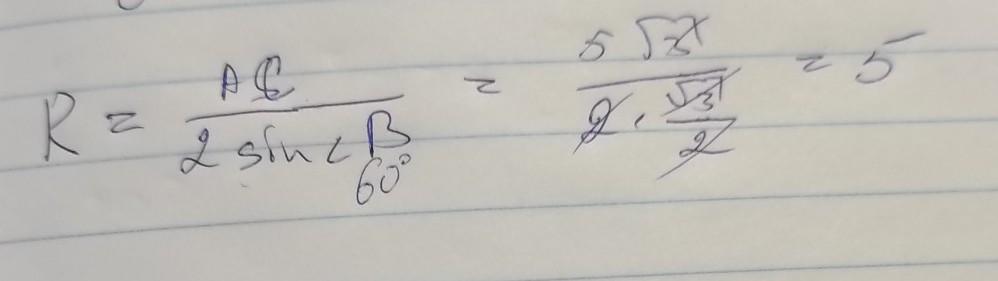 R = AC / 2 sin ∠B = 5√3 / 2 · √3/2 = 5
60°